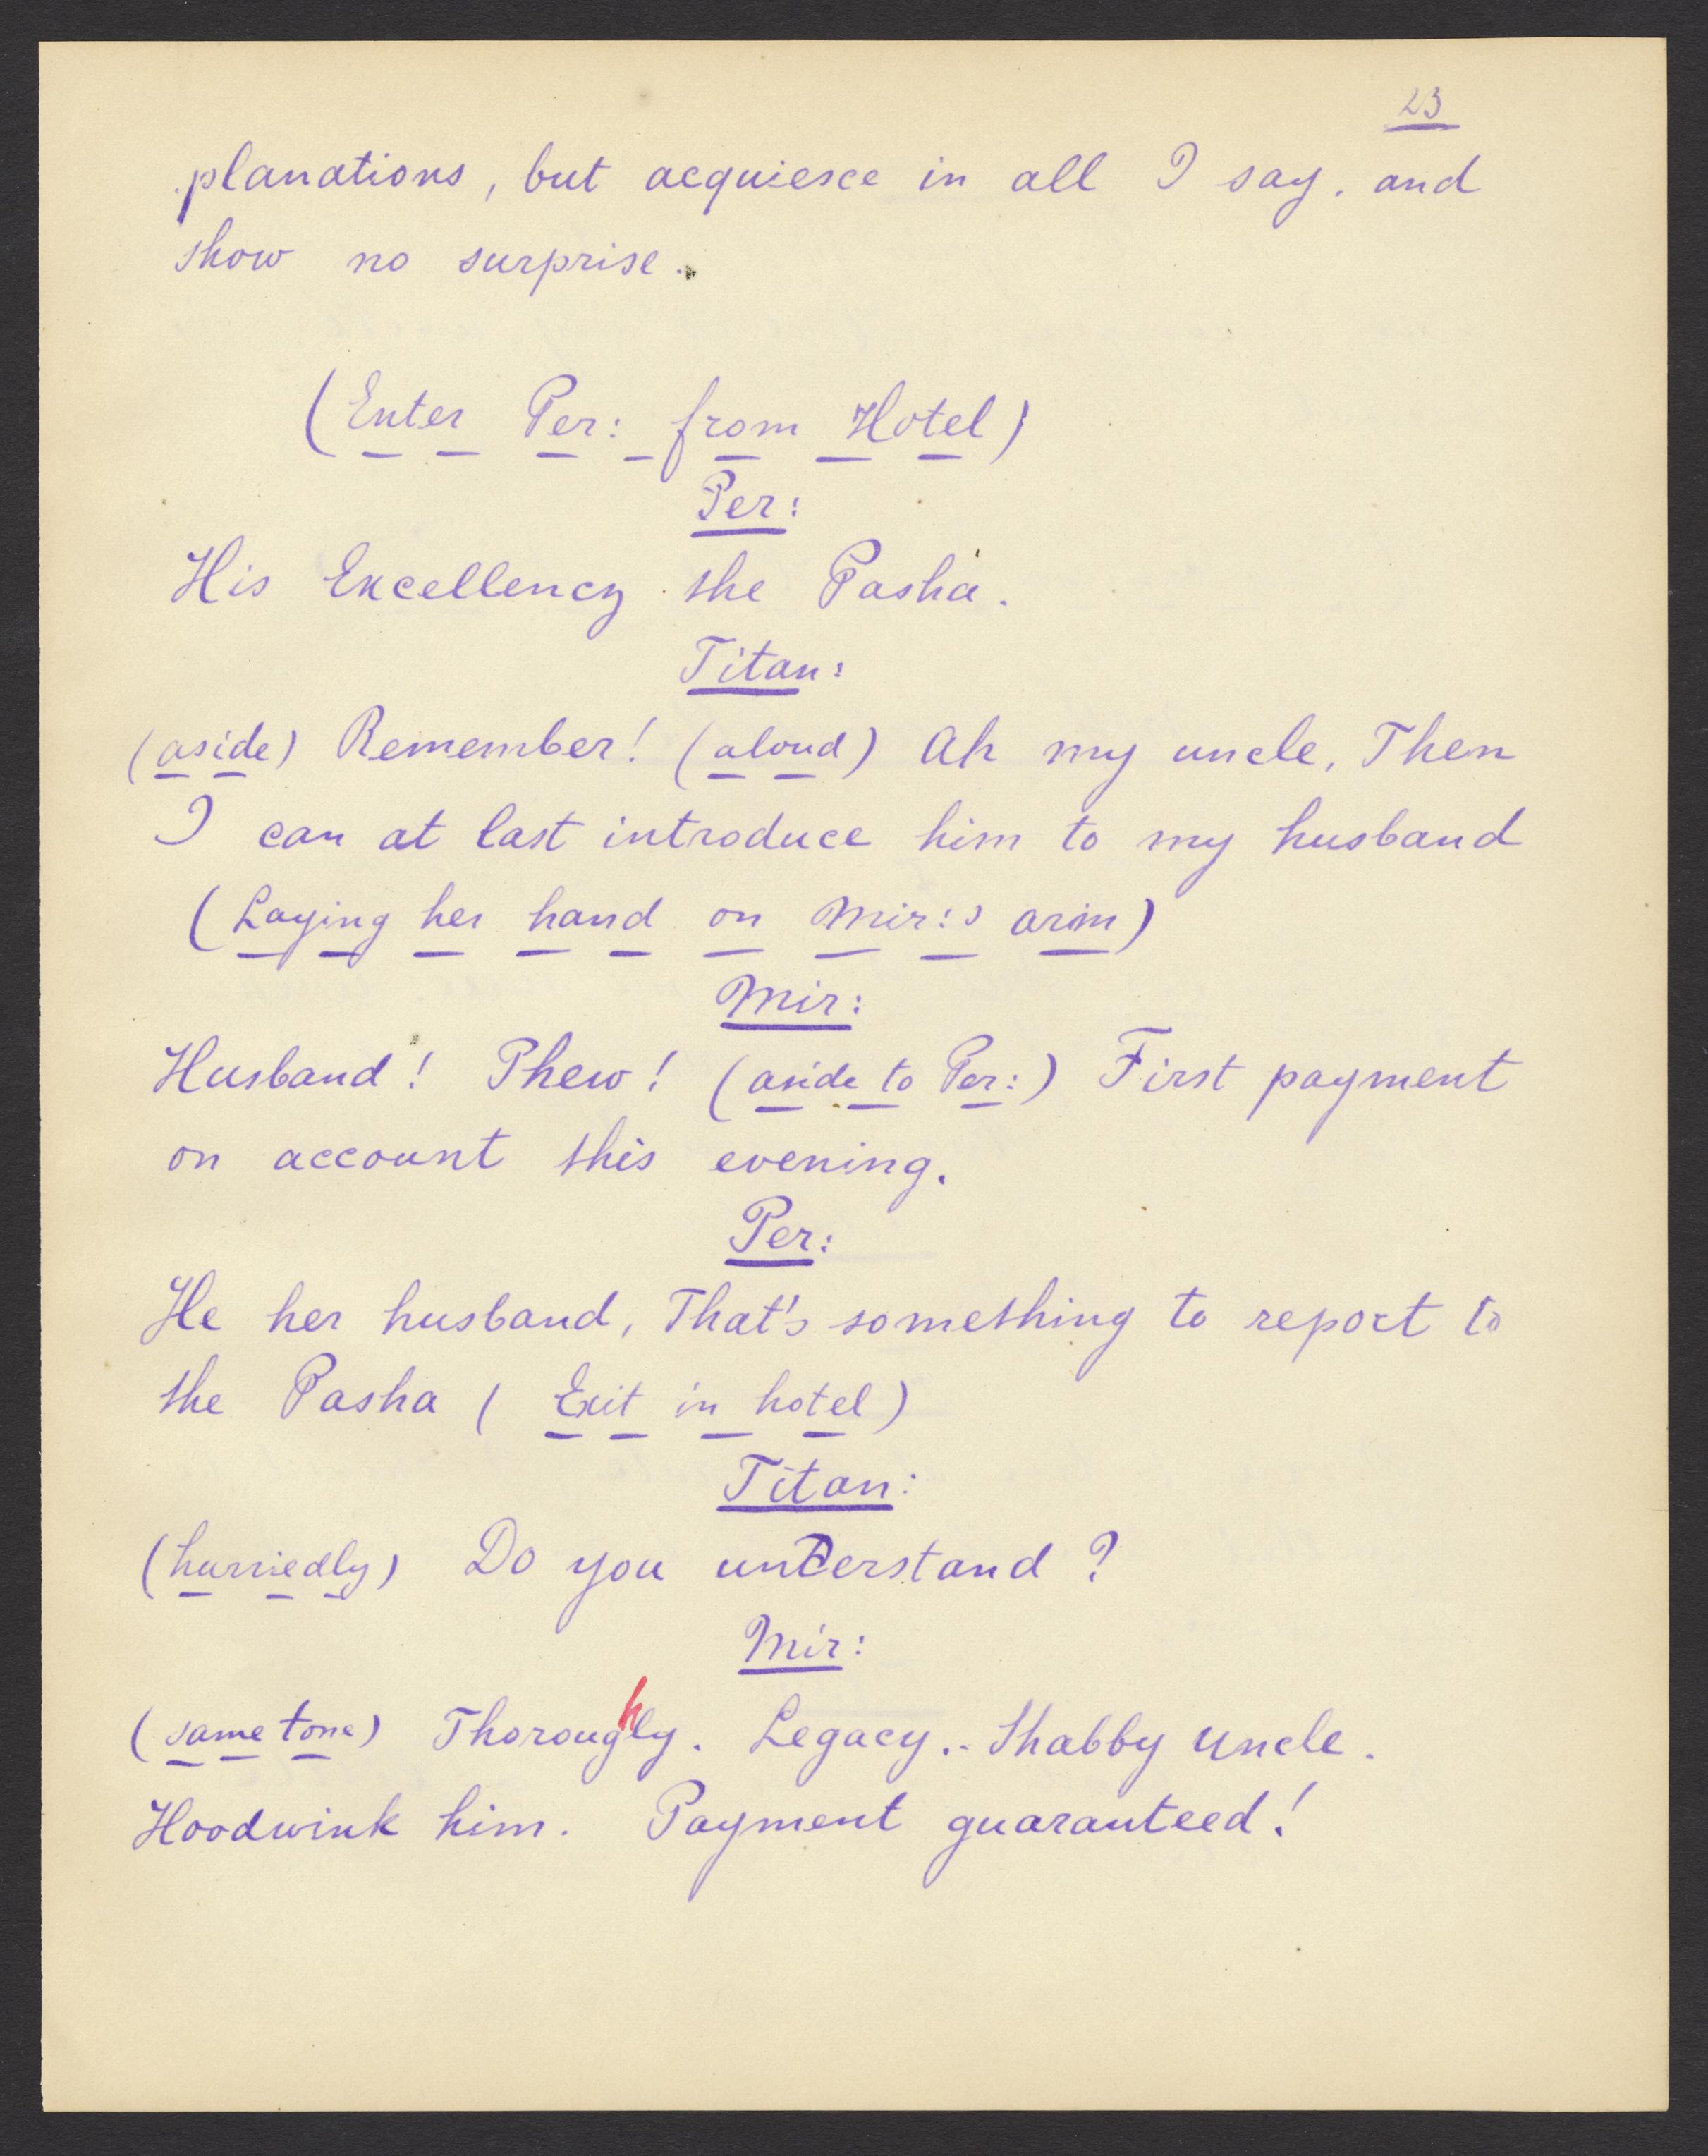 23
planations, but acquiesce in all I say, and
show no surprise.
(Enter Per: from Hotel)
Per:
His Excellency the Pasha.
Titan:
(aside) Remember! (aloud) Ah my uncle, Then
I can at last introduce him to my husband
(Laying her hand on Mir:s arm)
Mir:
Husband! Phew! (aside to Per:) First payment
on account this evening.
Per:
He her husband, That's something to report to
the Pasha (Exit in hotel)
Titan:
(hurriedly) Do you understand?
Mir:
(same tone) Thoroughly. Legacy.. Shabby Uncle.
Hoodwink him. Payment guaranteed!